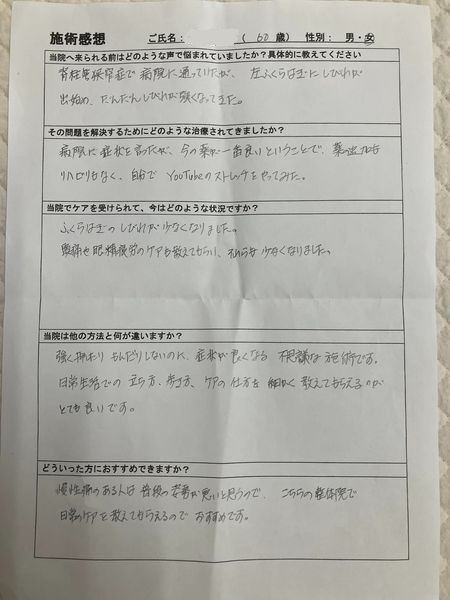 施術感想 ご氏名： （ 60 歳） 性別： 男・女
当院へ来られる前はどのような声で悩まれていましたか？具体的に教えてください
脊柱管狭窄症で病院に通っていたが、左ふくらはぎにしびれが
出始め、だんだんしびれが強くなってきた。
その問題を解決するためにどのような治療されてきましたか？
病院に症状を言ったが、今の薬が一番良いということで、薬の追加も
リハビリもなく、自分で YouTubeのストレッチをやってみた。
当院でケアを受けられて、今はどのような状況ですか？
ふくらはぎのしびれが少なくなりました。
頭痛や眼精疲労のケアも教えてもらい、それらも少なくなりました。
当院は他の方法と何が違いますか？
強く押したり もんだりしないのに、症状が良くなる 不思議な施術です。
日常生活での 立ち方、歩き方、ケアの仕方を 細かく教えてもらえるのが
とても良いです。
どういった方におすすめできますか？
慢性痛のある人は 普段の姿勢が悪いと思うので、こちらの整体院で
日常のケアを教えてもらえるので おすすめです。